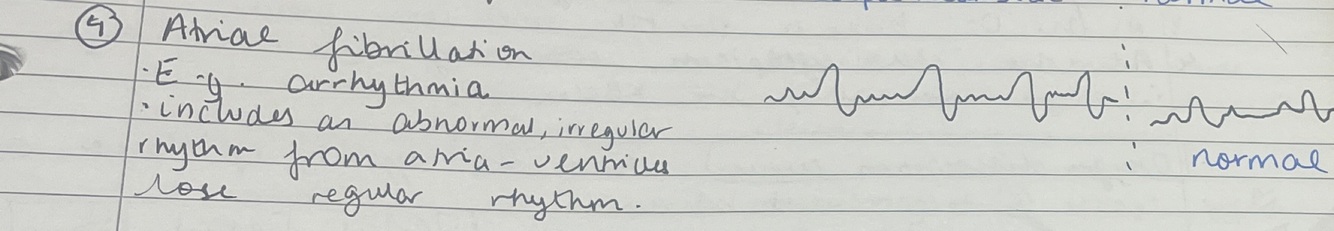 ④ Atrial fibrillation
· E.g. arrhythmia
· includes an abnormal, irregular
rhythm from atria - ventricles
lose regular rhythm.
normal